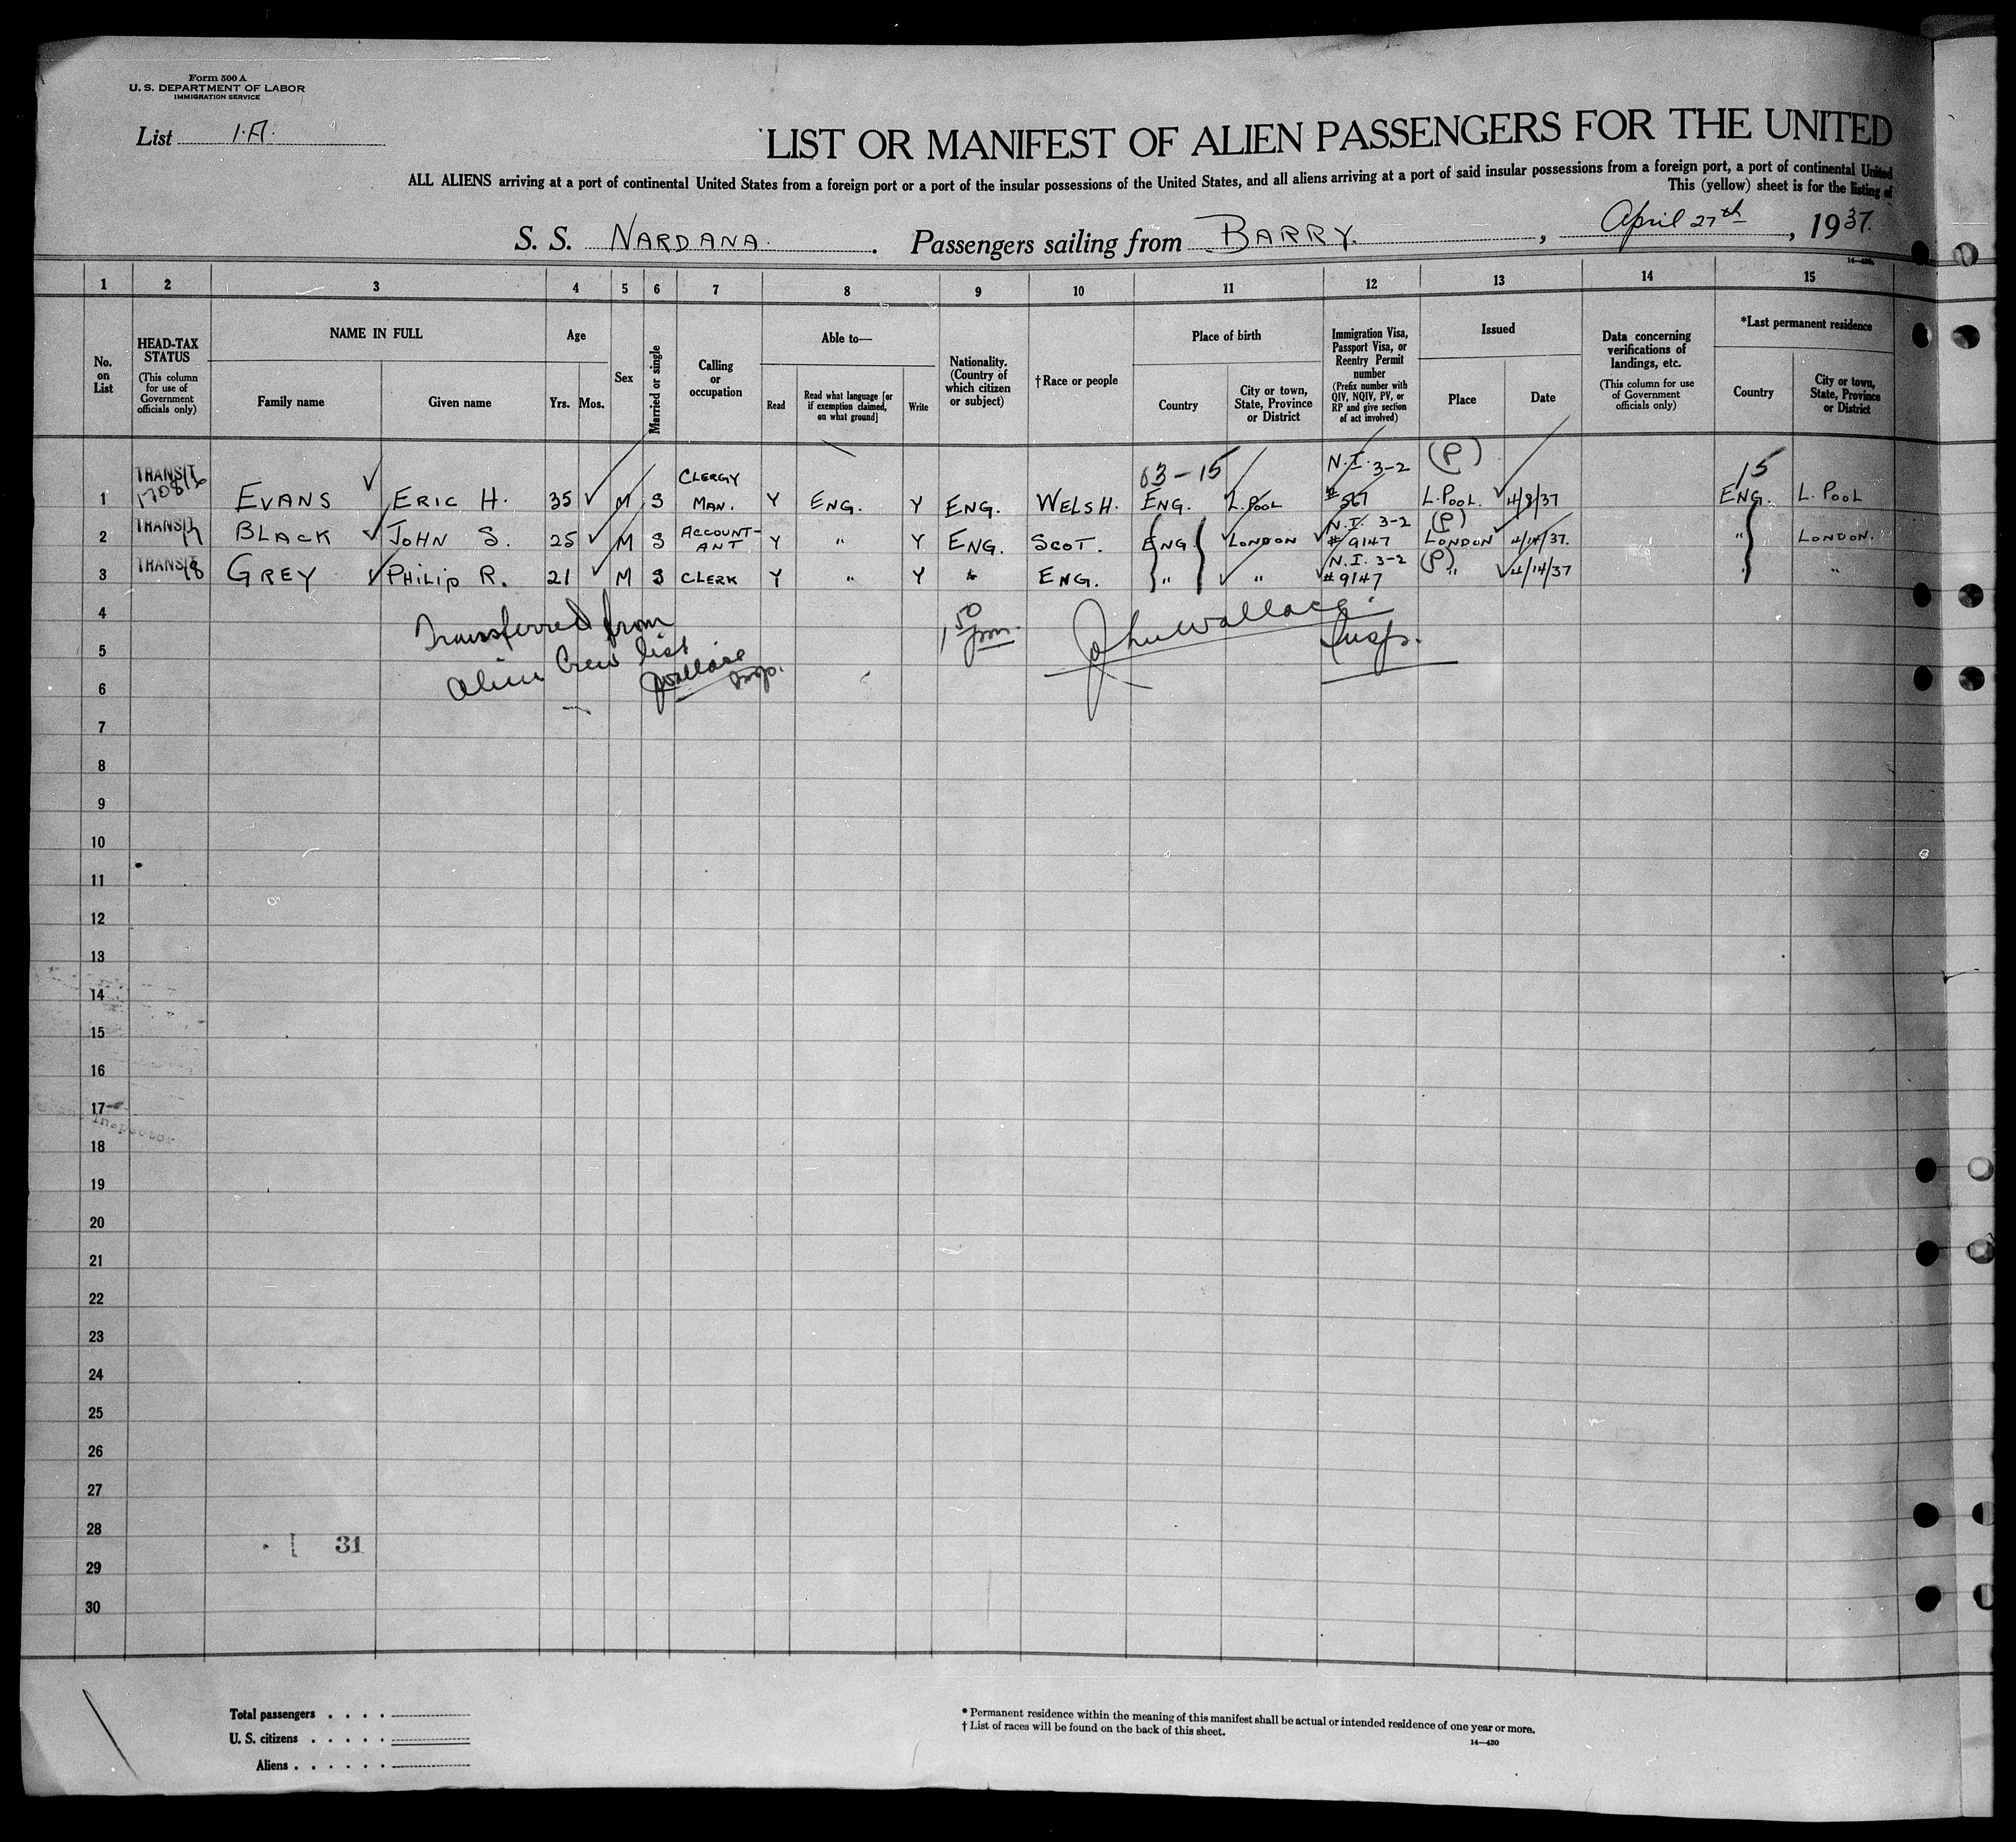 Form 500 A
U. S. DEPARTMENT OF LABOR
IMMIGRATION SERVICE
List 1.A.
LIST OR MANIFEST OF ALIEN PASSENGERS FOR THE UNITED
ALL ALIENS arriving at a port of continental United States from a foreign port or a port of the insular possessions of the United States, and all aliens arriving at a port of said insular possessions from a foreign port, a port of continental United
This (yellow) sheet is for the listing of
S. S. NARDANA. Passengers sailing from BARRY. , April 27th , 1937.
1 2 3 4 5 6 7 8 9 10 11 12 13 14 15
No. on List
HEAD-TAX STATUS
(This column for use of Government officials only)
NAME IN FULL
Family name
Given name
Age
Yrs. Mos.
Sex
Married or single
Calling or occupation
Able to—
Read
Read what language [or if exemption claimed, on what ground]
Write
Nationality. (Country of which citizen or subject)
† Race or people
Place of birth
Country
City or town, State, Province or District
Immigration Visa, Passport Visa, or Reentry Permit number
(Prefix number with QIV, NQIV, PV, or RP and give section of act involved)
Issued
Place
Date
Data concerning verifications of landings, etc.
(This column for use of Government officials only)
*Last permanent residence
Country
City or town, State, Province or District
14—430
TRANSIT CLERGY 63-15 N.I. 3-2 (P) 15
1 17081/6 EVANS ERIC H. 35 M S MAN. Y ENG. Y ENG. WELSH. ENG. L.POOL #567 L.POOL. 4/8/37 ENG. L.POOL
TRANSIT ACCOUNT- N.I. 3-2 (P)
2 17 BLACK JOHN S. 25 M S ANT Y " Y ENG. SCOT. ENG LONDON #9147 LONDON 4/14/37. " LONDON.
TRANSIT N.I. 3-2 (P)
3 18 GREY PHILIP R. 21 M S CLERK Y " Y " ENG. " " #9147 " 4/14/37 " "
4
Transferred from
Alien Crew list
JWallace
Insp.
1 50 pm.
John Wallace
Insp.
5
6
7
8
9
10
11
12
13
14
15
16
17
Inspector
18
19
20
21
22
23
24
25
26
27
28
31
29
30
Total passengers . . . .
U. S. citizens . . . . .
Aliens . . . . . .
* Permanent residence within the meaning of this manifest shall be actual or intended residence of one year or more.
† List of races will be found on the back of this sheet.
14—430